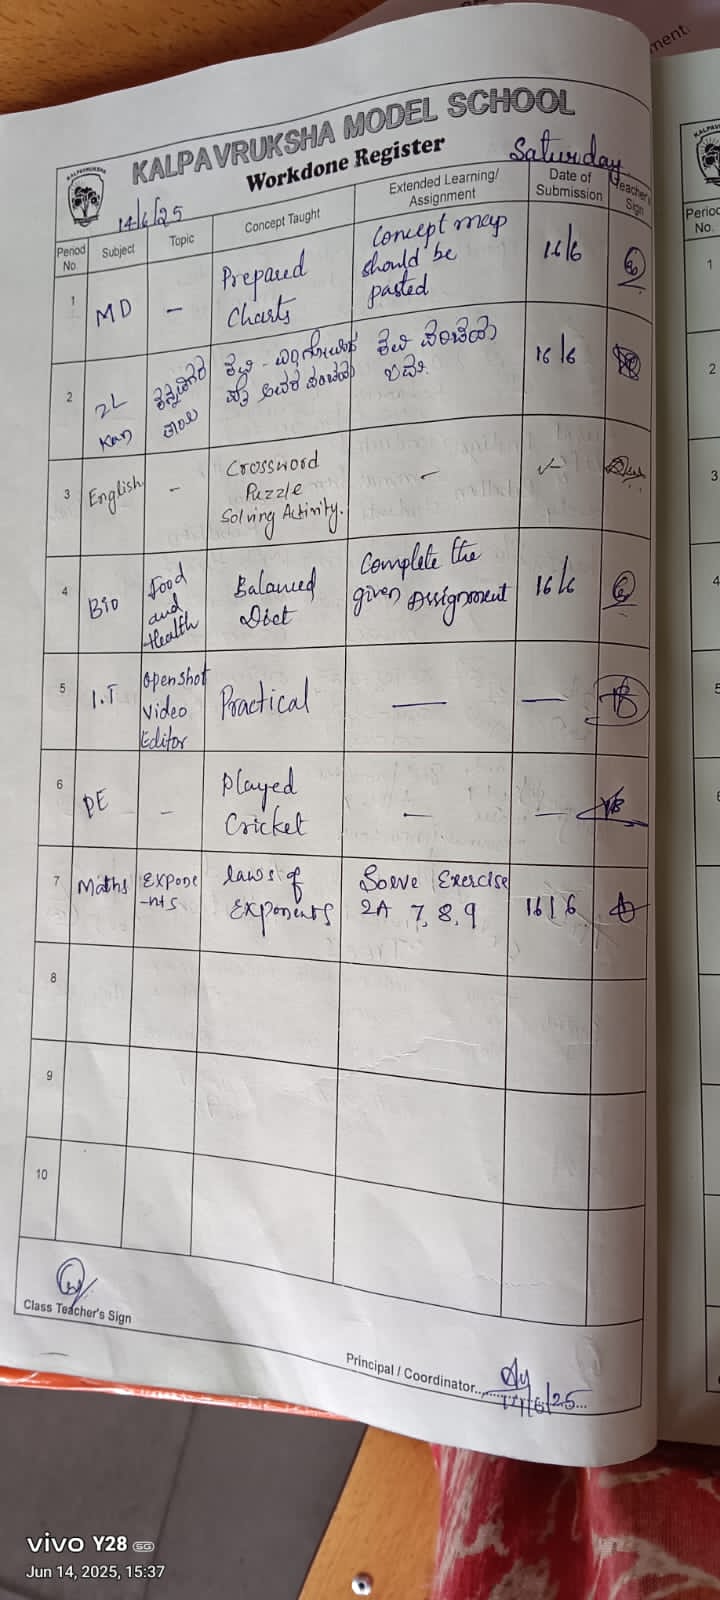 ment.
KALPAVRUKSHA
KALPAVRUKSHA MODEL SCHOOL
Workdone Register
Saturday
14/6/25
Period No.
Subject
Topic
Concept Taught
Extended Learning/ Assignment
Date of Submission
Teacher's Sign
1
MD
-
Prepared
Charts
Concept map
should be
pasted
16/6
2
2L
Kan
ಕವಿ -
ಕವಿ
16/6
3
English
-
Crossword
Puzzle
Solving Activity.
-
4
Bio
Food
and
Health
Balanced
Diet
Complete the
given Assignment
16/6
5
I.T
Openshot
Video
Editor
Practical
—
—
6
PE
-
Played
Cricket
—
—
7
Maths
Expone
-nts
laws of
Exponents
Solve Exercise
2A 7, 8, 9
16/6
8
9
10
Class Teacher's Sign
Principal / Coordinator
14/6/25
Period
No.
1
2
3
4
5
vivo Y28 5G
Jun 14, 2025, 15:37